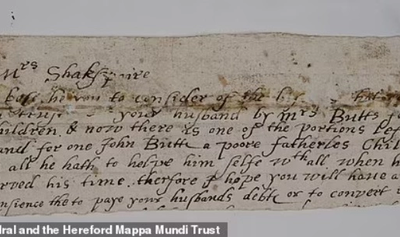 Mrs Shakspaire
you to consider of the
your husband by mrs Butts
hildren, & now there is one of the portions
and for one John Butts a poore fatherles Chil
all he hath to helpe him selfe wth all when h
rved his time, therfore I hope you will have a
nsience the to paye your husbands debt or to convert
dral and the Hereford Mappa Mundi Trust